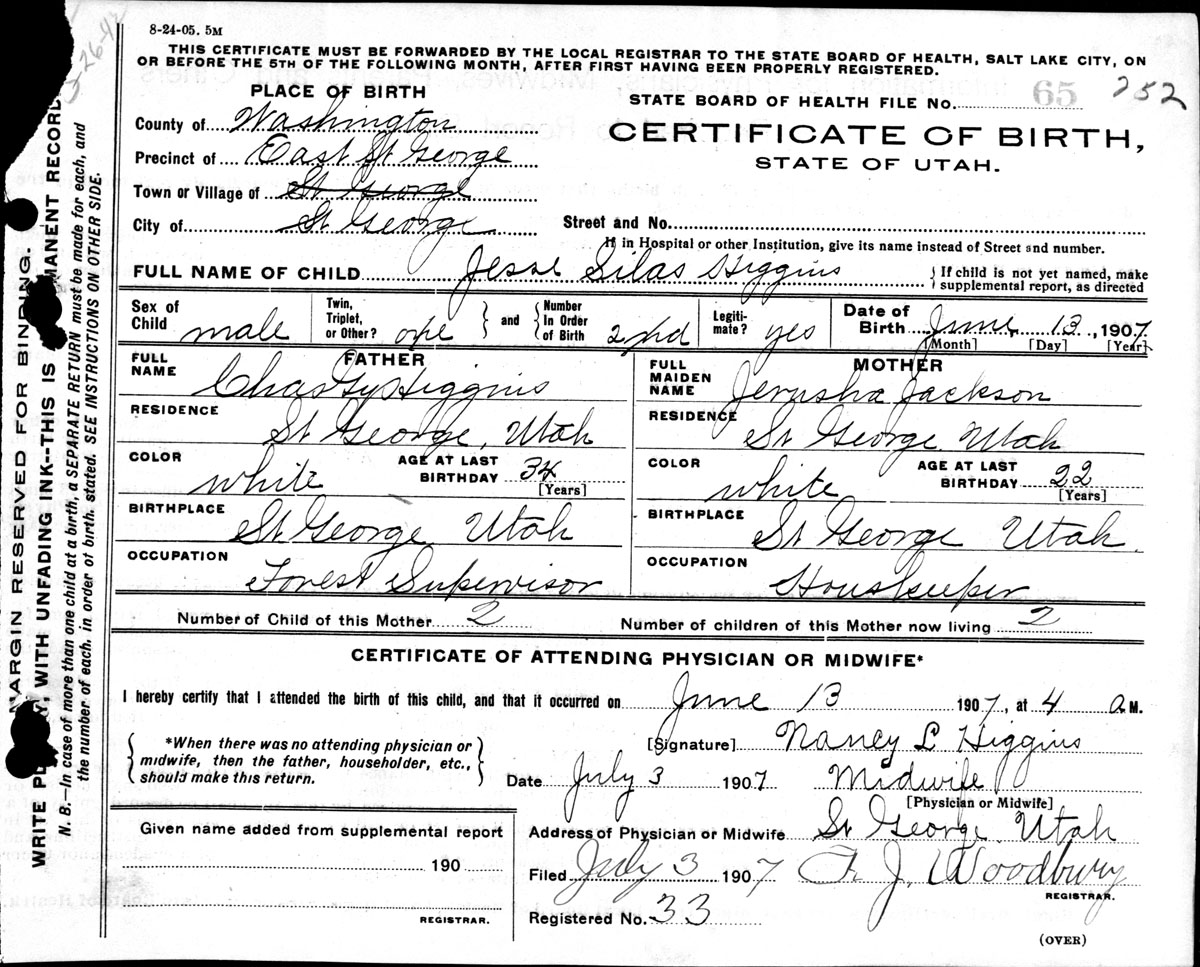 8-24-05. 5M
THIS CERTIFICATE MUST BE FORWARDED BY THE LOCAL REGISTRAR TO THE STATE BOARD OF HEALTH, SALT LAKE CITY, ON
OR BEFORE THE 5TH OF THE FOLLOWING MONTH, AFTER FIRST HAVING BEEN PROPERLY REGISTERED.
PLACE OF BIRTH
County of Washington
Precinct of East St George
Town or Village of St George
City of St George
STATE BOARD OF HEALTH FILE No. 65 252
CERTIFICATE OF BIRTH,
STATE OF UTAH.
Street and No.
If in Hospital or other Institution, give its name instead of Street and number.
FULL NAME OF CHILD Jesse Silas Higgins
{If child is not yet named, make
supplemental report, as directed
Sex of Child male
Twin, Triplet, or Other? one
and
Number In Order of Birth 2nd
Legiti-mate? yes
Date of Birth June 13, 1907
[Month] [Day] [Year]
FATHER
FULL NAME Chas Higgins
RESIDENCE St George, Utah
COLOR white AGE AT LAST BIRTHDAY 34 [Years]
BIRTHPLACE St George Utah
OCCUPATION Forest Supervisor
MOTHER
FULL MAIDEN NAME Jerusha Jackson
RESIDENCE St George Utah
COLOR white AGE AT LAST BIRTHDAY 22 [Years]
BIRTHPLACE St George Utah.
OCCUPATION Houskeeper
Number of Child of this Mother 2 Number of children of this Mother now living 2
CERTIFICATE OF ATTENDING PHYSICIAN OR MIDWIFE*
I hereby certify that I attended the birth of this child, and that it occurred on June 13 1907, at 4 a M.
{*When there was no attending physician or
midwife, then the father, householder, etc.,
should make this return.}
[Signature] Nancy L Higgins
Date July 3 1907 Midwife
[Physician or Midwife]
Address of Physician or Midwife St George Utah
Filed July 3 1907 J. Woodbury
REGISTRAR.
Registered No. 33
(OVER)
Given name added from supplemental report
190
REGISTRAR.
MARGIN RESERVED FOR BINDING.
WRITE WITH UNFADING INK--THIS IS RECORD
N. B.—In case of more than one child at a birth, a SEPARATE RETURN must be made for each, and
the number of each, in order of birth, stated. SEE INSTRUCTIONS ON OTHER SIDE.